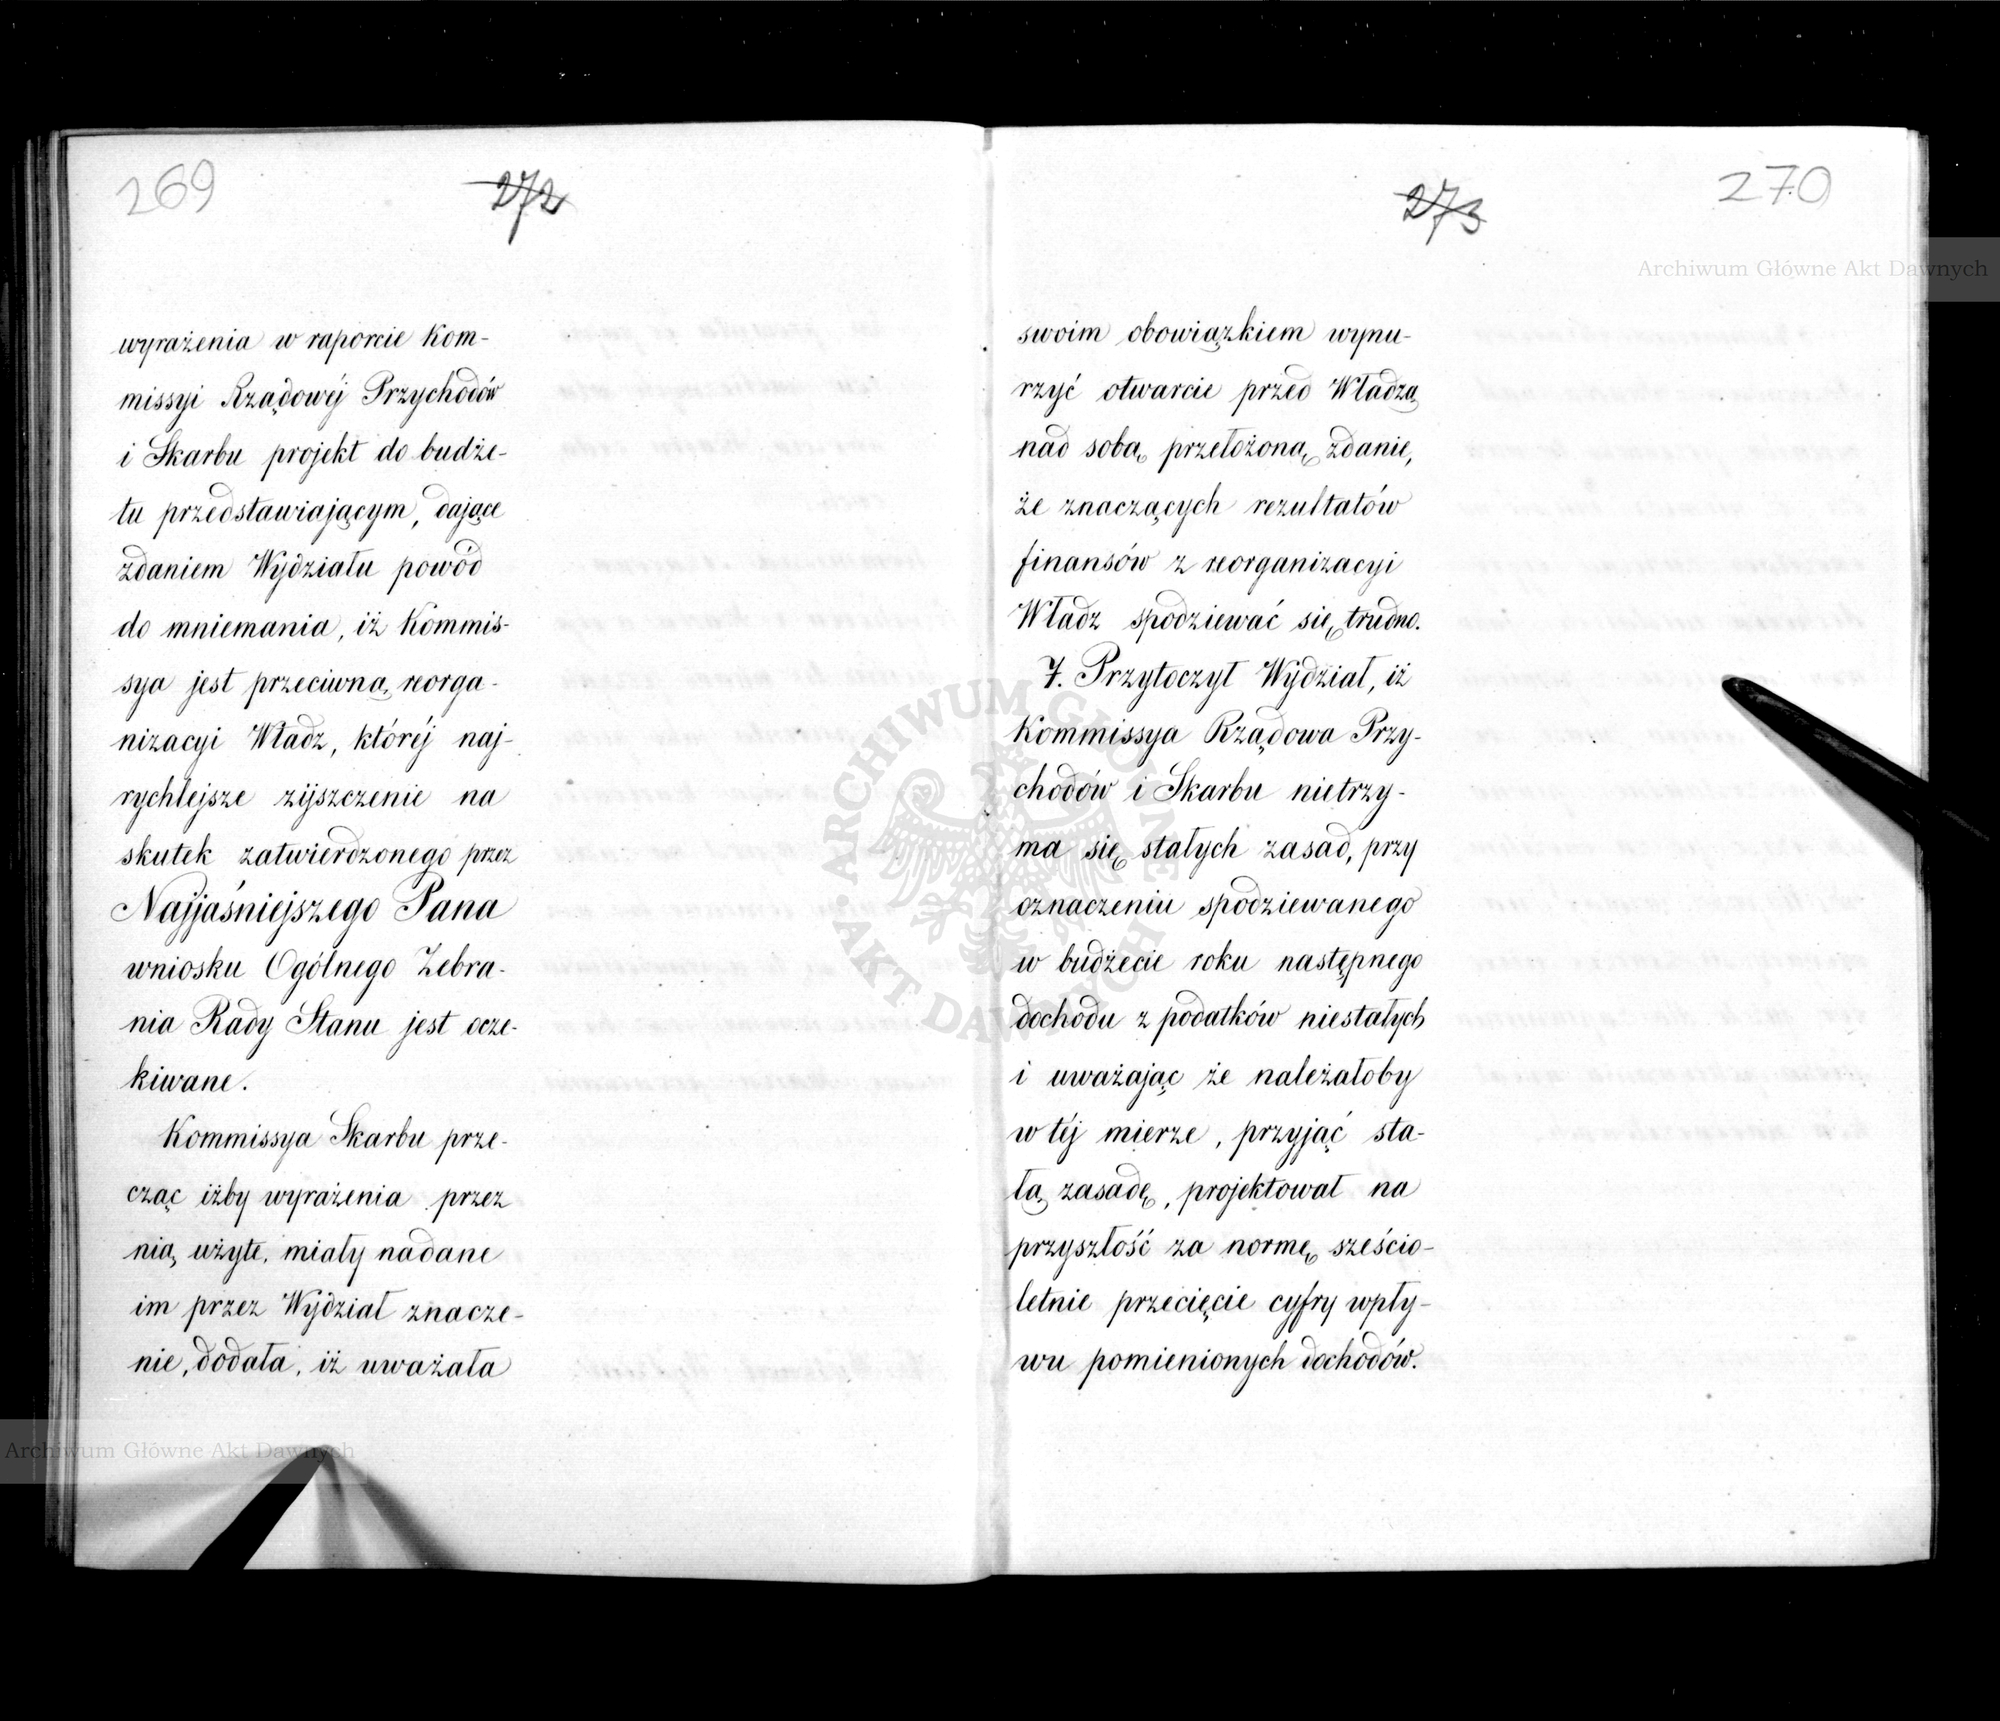 269
272
wyrażenia w raporcie Kom-
missyi Rządowéj Przychodów
i Skarbu projekt do budże-
tu przedstawiającym, dające
zdaniem Wydziału powód
do mniemania, iż Kommis-
sya jest przeciwną reorga-
nizacyi Władz, któréj naj-
rychlejsze ziszczenie na
skutek zatwierdzonego przez
Najjaśniejszego Pana
wniosku Ogólnego Zebra-
nia Rady Stanu jest ocze-
kiwane.
Kommissya Skarbu prze-
cząc iżby wyrażenia przez
nią użyte, miały nadane
im przez Wydział znacze-
nie, dodała, iż uważała
273
270
swoim obowiązkiem wynu-
rzyć otwarcie przed Władzą
nad sobą przełożoną zdanie,
że znaczących rezultatów
finansów z reorganizacyi
Władz spodziewać się trudno.
7. Przytoczył Wydział, iż
Kommissya Rządowa Przy-
chodów i Skarbu nietrzy-
ma się stałych zasad, przy
oznaczeniu spodziewanego
w budżecie roku następnego
dochodu z podatków niestałych
i uważając że należałoby
w téj mierze, przyjąć sta-
łą zasadę, projektował na
przyszłość za normę sześcio-
letnie przecięcie cyfry wpły-
wu pomienionych dochodów.
Archiwum Główne Akt Dawnych
ARCHIWUM GŁÓWNE AKT DAWNYCH
Archiwum Główne Akt Dawnych